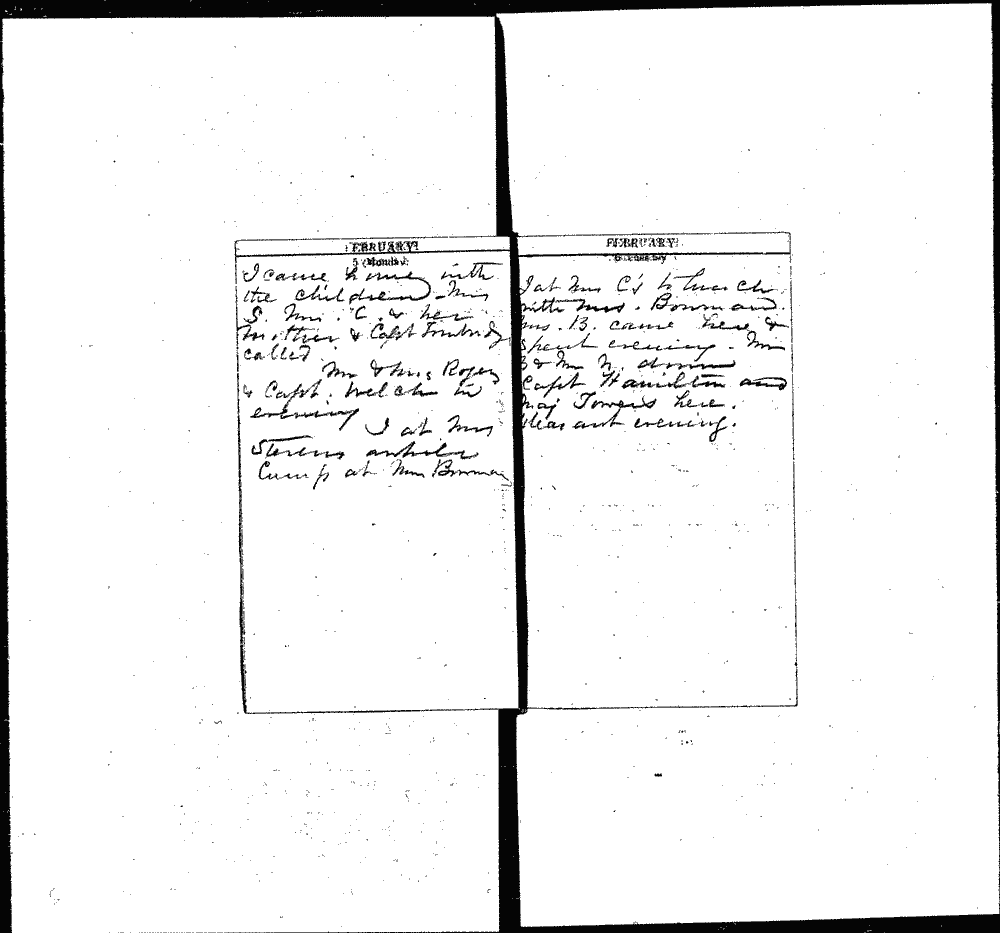 FEBRUARY
5 (Monday)
I came home with
the children. Mrs
S. Mrs. C. & her
mother & Capt Trowbridge
called
Mr & Mrs Rogers
& Capt. Welch in
evening
I at Mrs
Stevens
Camp at Mrs Bowman
FEBRUARY
6 Tuesday
I at Mrs C's to lunch
with Mrs. Bowman.
Mrs. B. came here &
spent evening. Mr
& Mrs N. down
Capt Hamilton and
Maj Towers here.
Pleasant evening.